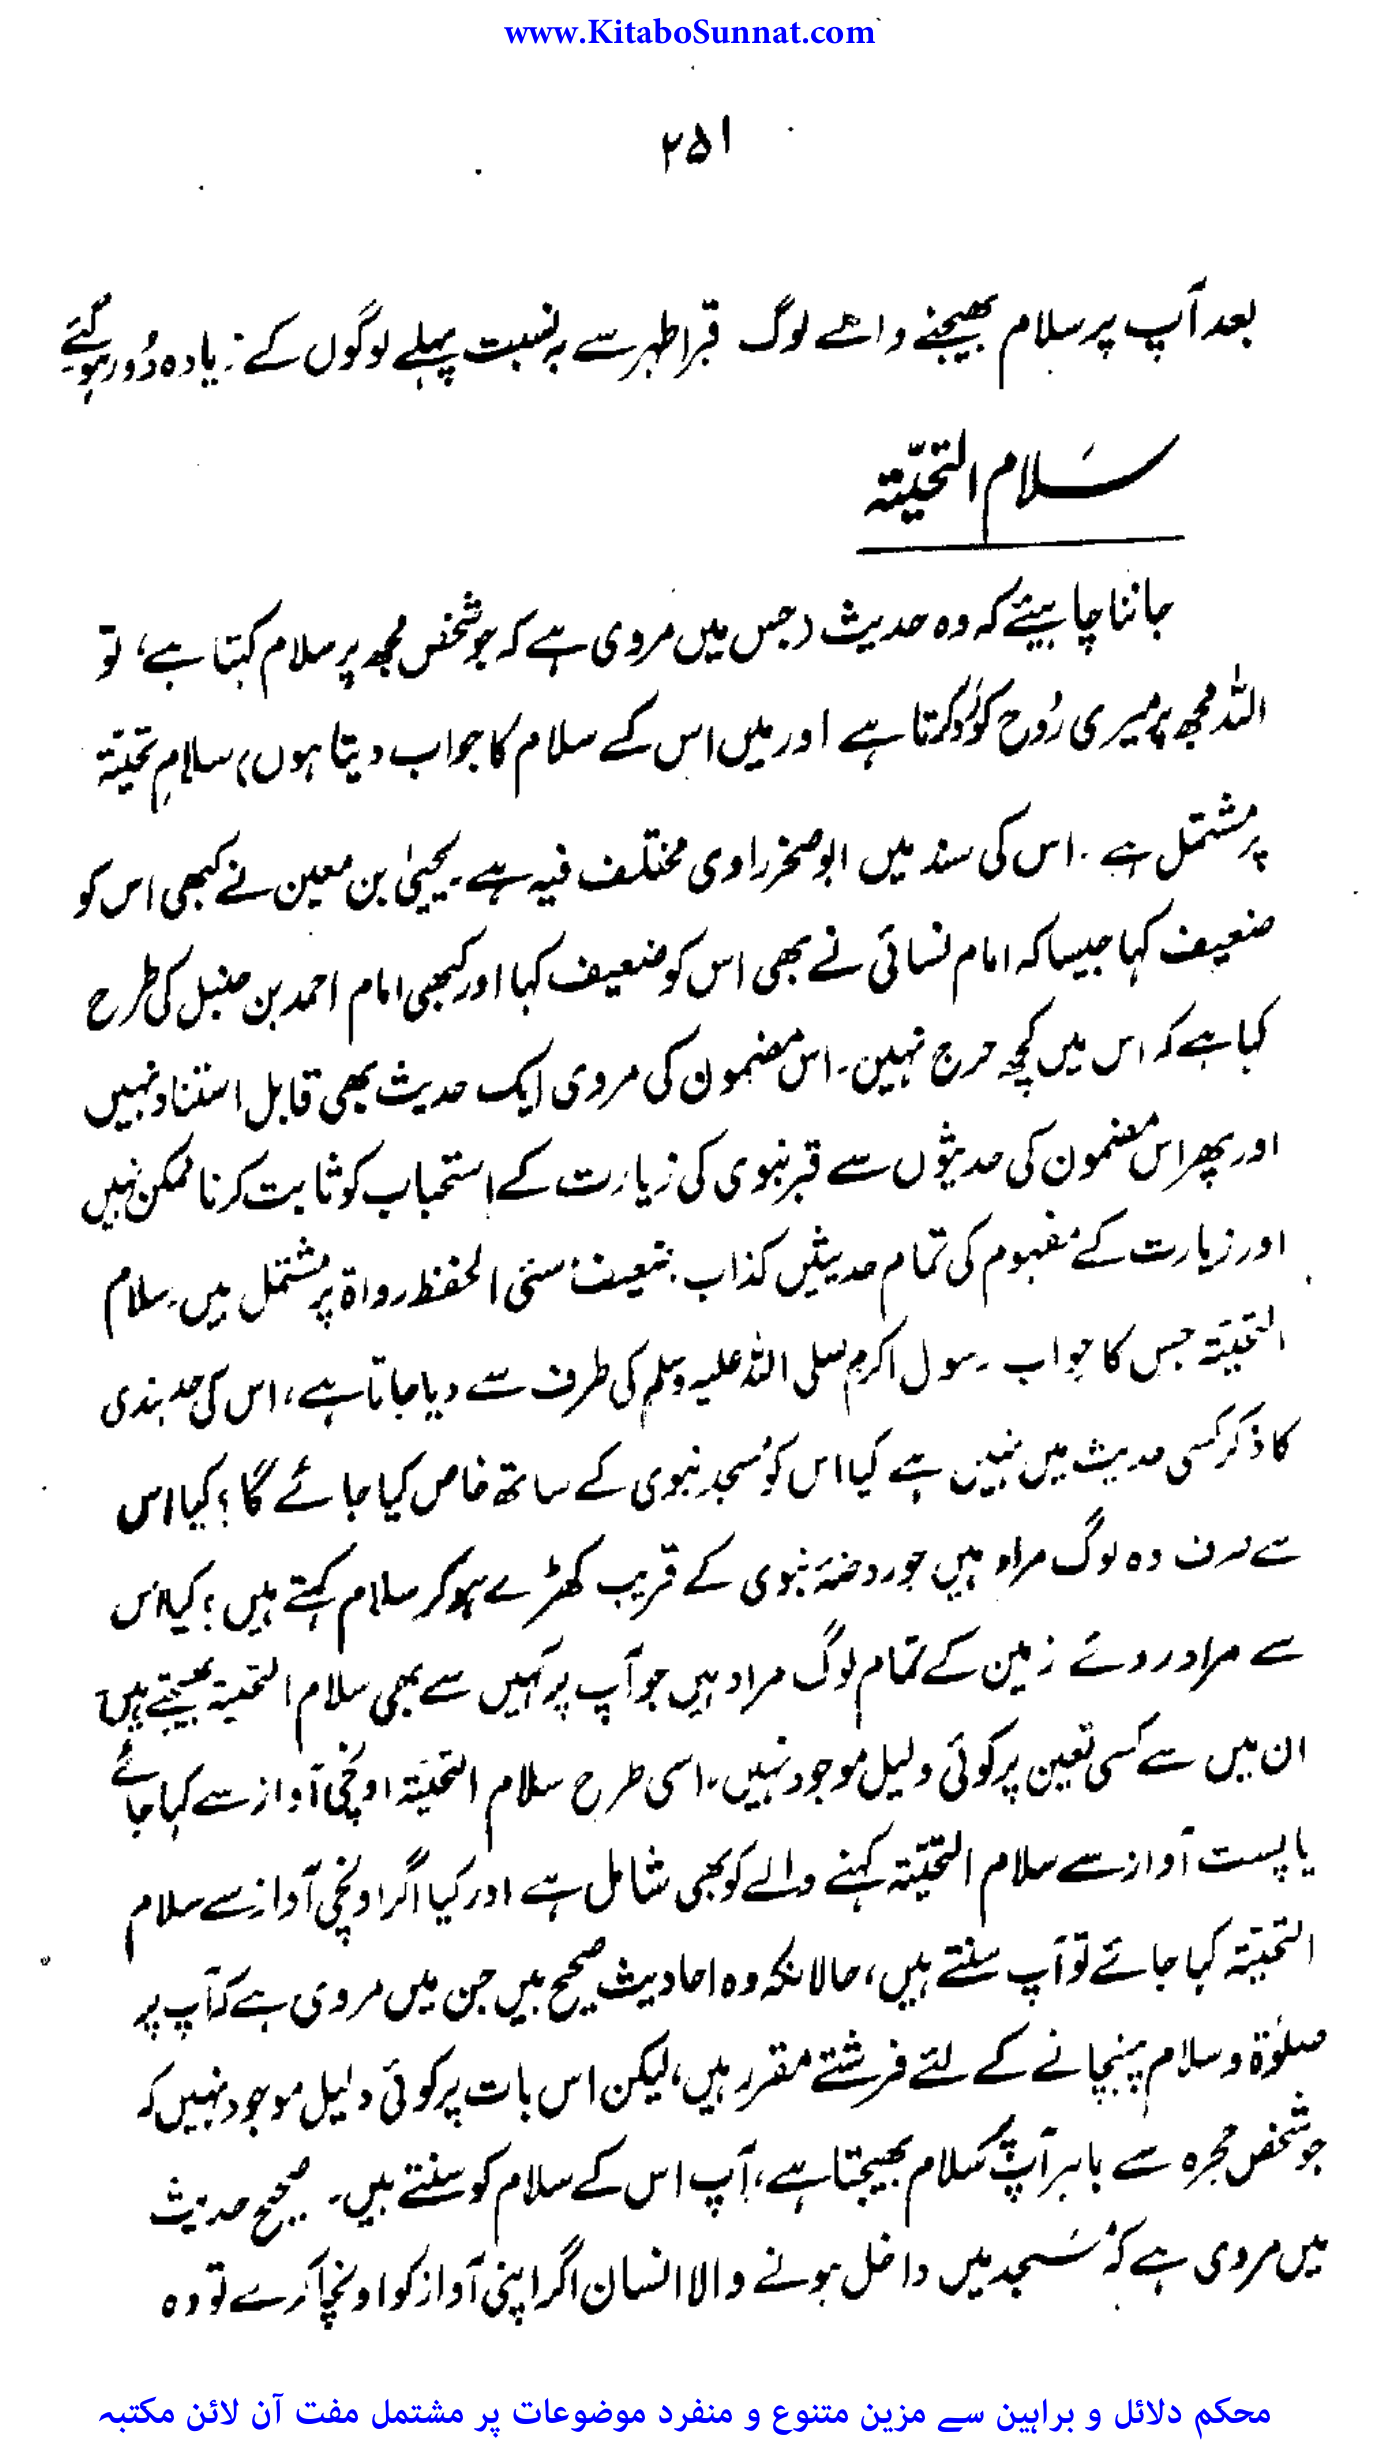 www.KitaboSunnat.com
۲۵۱
بعد آپ پر سلام بھیجنے والے لوگ قبر اطہر سے بہ نسبت پہلے لوگوں کے زیادہ دُور ہو گئے
سَلام التحیّۃ
جاننا چاہیئے کہ وہ حدیث (جس میں مروی ہے کہ جو شخص مجھ پر سلام کہتا ہے، تو
اللہ مجھ پر میری رُوح کو رد کرتا ہے اور میں اس کے سلام کا جواب دیتا ہوں) سلام تحیّۃ
پر مشتمل ہے۔ اس کی سند میں ابو صخر راوی مختلف فیہ ہے۔ یحییٰ بن معین نے کبھی اس کو
ضعیف کہا جیسا کہ امام نسائی نے بھی اس کو ضعیف کہا اور کبھی امام احمد بن حنبل کی طرح
کہا ہے کہ اس میں کچھ حرج نہیں۔ اس مضمون کی مروی ایک حدیث بھی قابل استناد نہیں
اور پھر اس مضمون کی حدیثوں سے قبر نبوی کی زیارت کے استحباب کو ثابت کرنا ممکن نہیں
اور زیارت کے مفہوم کی تمام حدیثیں کذاب، ضعیف، سئی الحفظ رواۃ پر مشتمل ہیں۔ سلام
التحیّۃ جس کا جواب رسول اکرم صلی اللہ علیہ وسلم کی طرف سے دیا جاتا ہے، اس کی حد بندی
کا ذکر کسی حدیث میں نہیں ہے کیا اس کو مسجد نبوی کے ساتھ خاص کیا جائے گا؟ کیا اس
سے صرف وہ لوگ مراد ہیں جو روضۂ نبوی کے قریب کھڑے ہو کر سلام کہتے ہیں؟ کیا اس
سے مراد روئے زمین کے تمام لوگ مراد ہیں جو آپ پر کہیں سے بھی سلام التحیۃ بھیجتے ہیں؟
ان میں سے کسی تعین پر کوئی دلیل موجود نہیں۔ اسی طرح سلام التحیّۃ اونچی آواز سے کہا جائے
یا پست آواز سے سلام التحیّۃ کہنے والے کو بھی شامل ہے اور کیا اگر اونچی آواز سے سلام
التحیّۃ کہا جائے تو آپ سنتے ہیں، حالانکہ وہ احادیث صحیح ہیں جن میں مروی ہے کہ آپ پر
صلوٰۃ و سلام پہنچانے کے لئے فرشتے مقرر ہیں، لیکن اس بات پر کوئی دلیل موجود نہیں کہ
جو شخص حجرہ سے باہر آپ پر سلام بھیجتا ہے، آپ اس کے سلام کو سنتے ہیں۔ صحیح حدیث
میں مروی ہے کہ مسجد میں داخل ہونے والا انسان اگر اپنی آواز کو اونچا کرے تو وہ
محکم دلائل و براہین سے مزین متنوع و منفرد موضوعات پر مشتمل مفت آن لائن مکتبہ